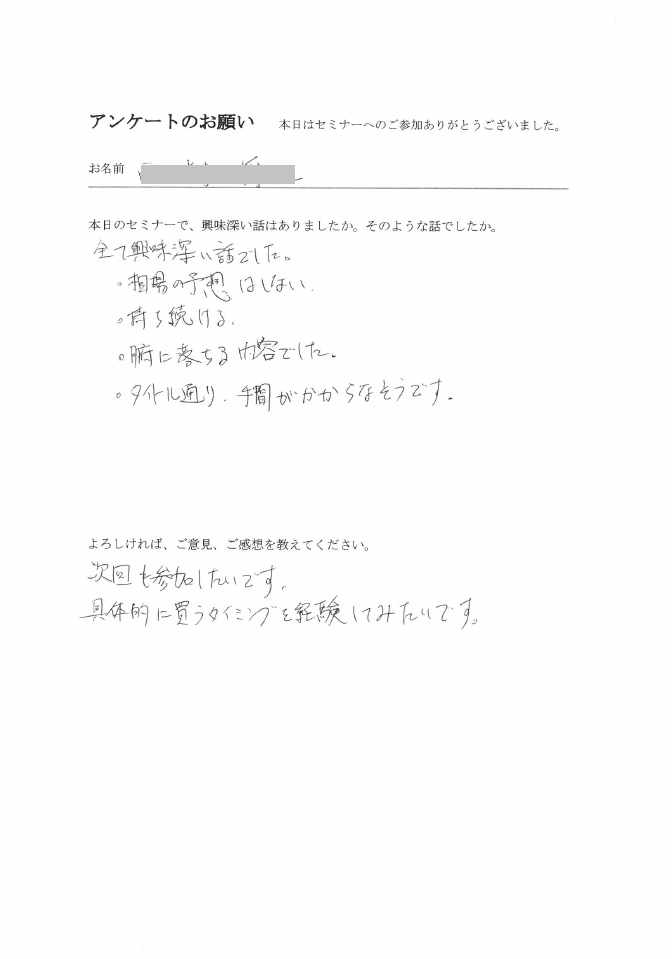 アンケートのお願い 本日はセミナーへのご参加ありがとうございました。
お名前
本日のセミナーで、興味深い話はありましたか。そのような話でしたか。
全て興味深い話でした。
。相場の予想はしない.
。持ち続ける.
。腑に落ちる内容でした。
。タイトル通り、手間がかからなそうです。
よろしければ、ご意見、ご感想を教えてください。
次回も参加したいです。
具体的に買うタイミングを経験してみたいです。